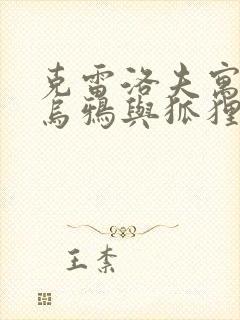 克雷洛夫寓
烏鴉與狐狸
王素